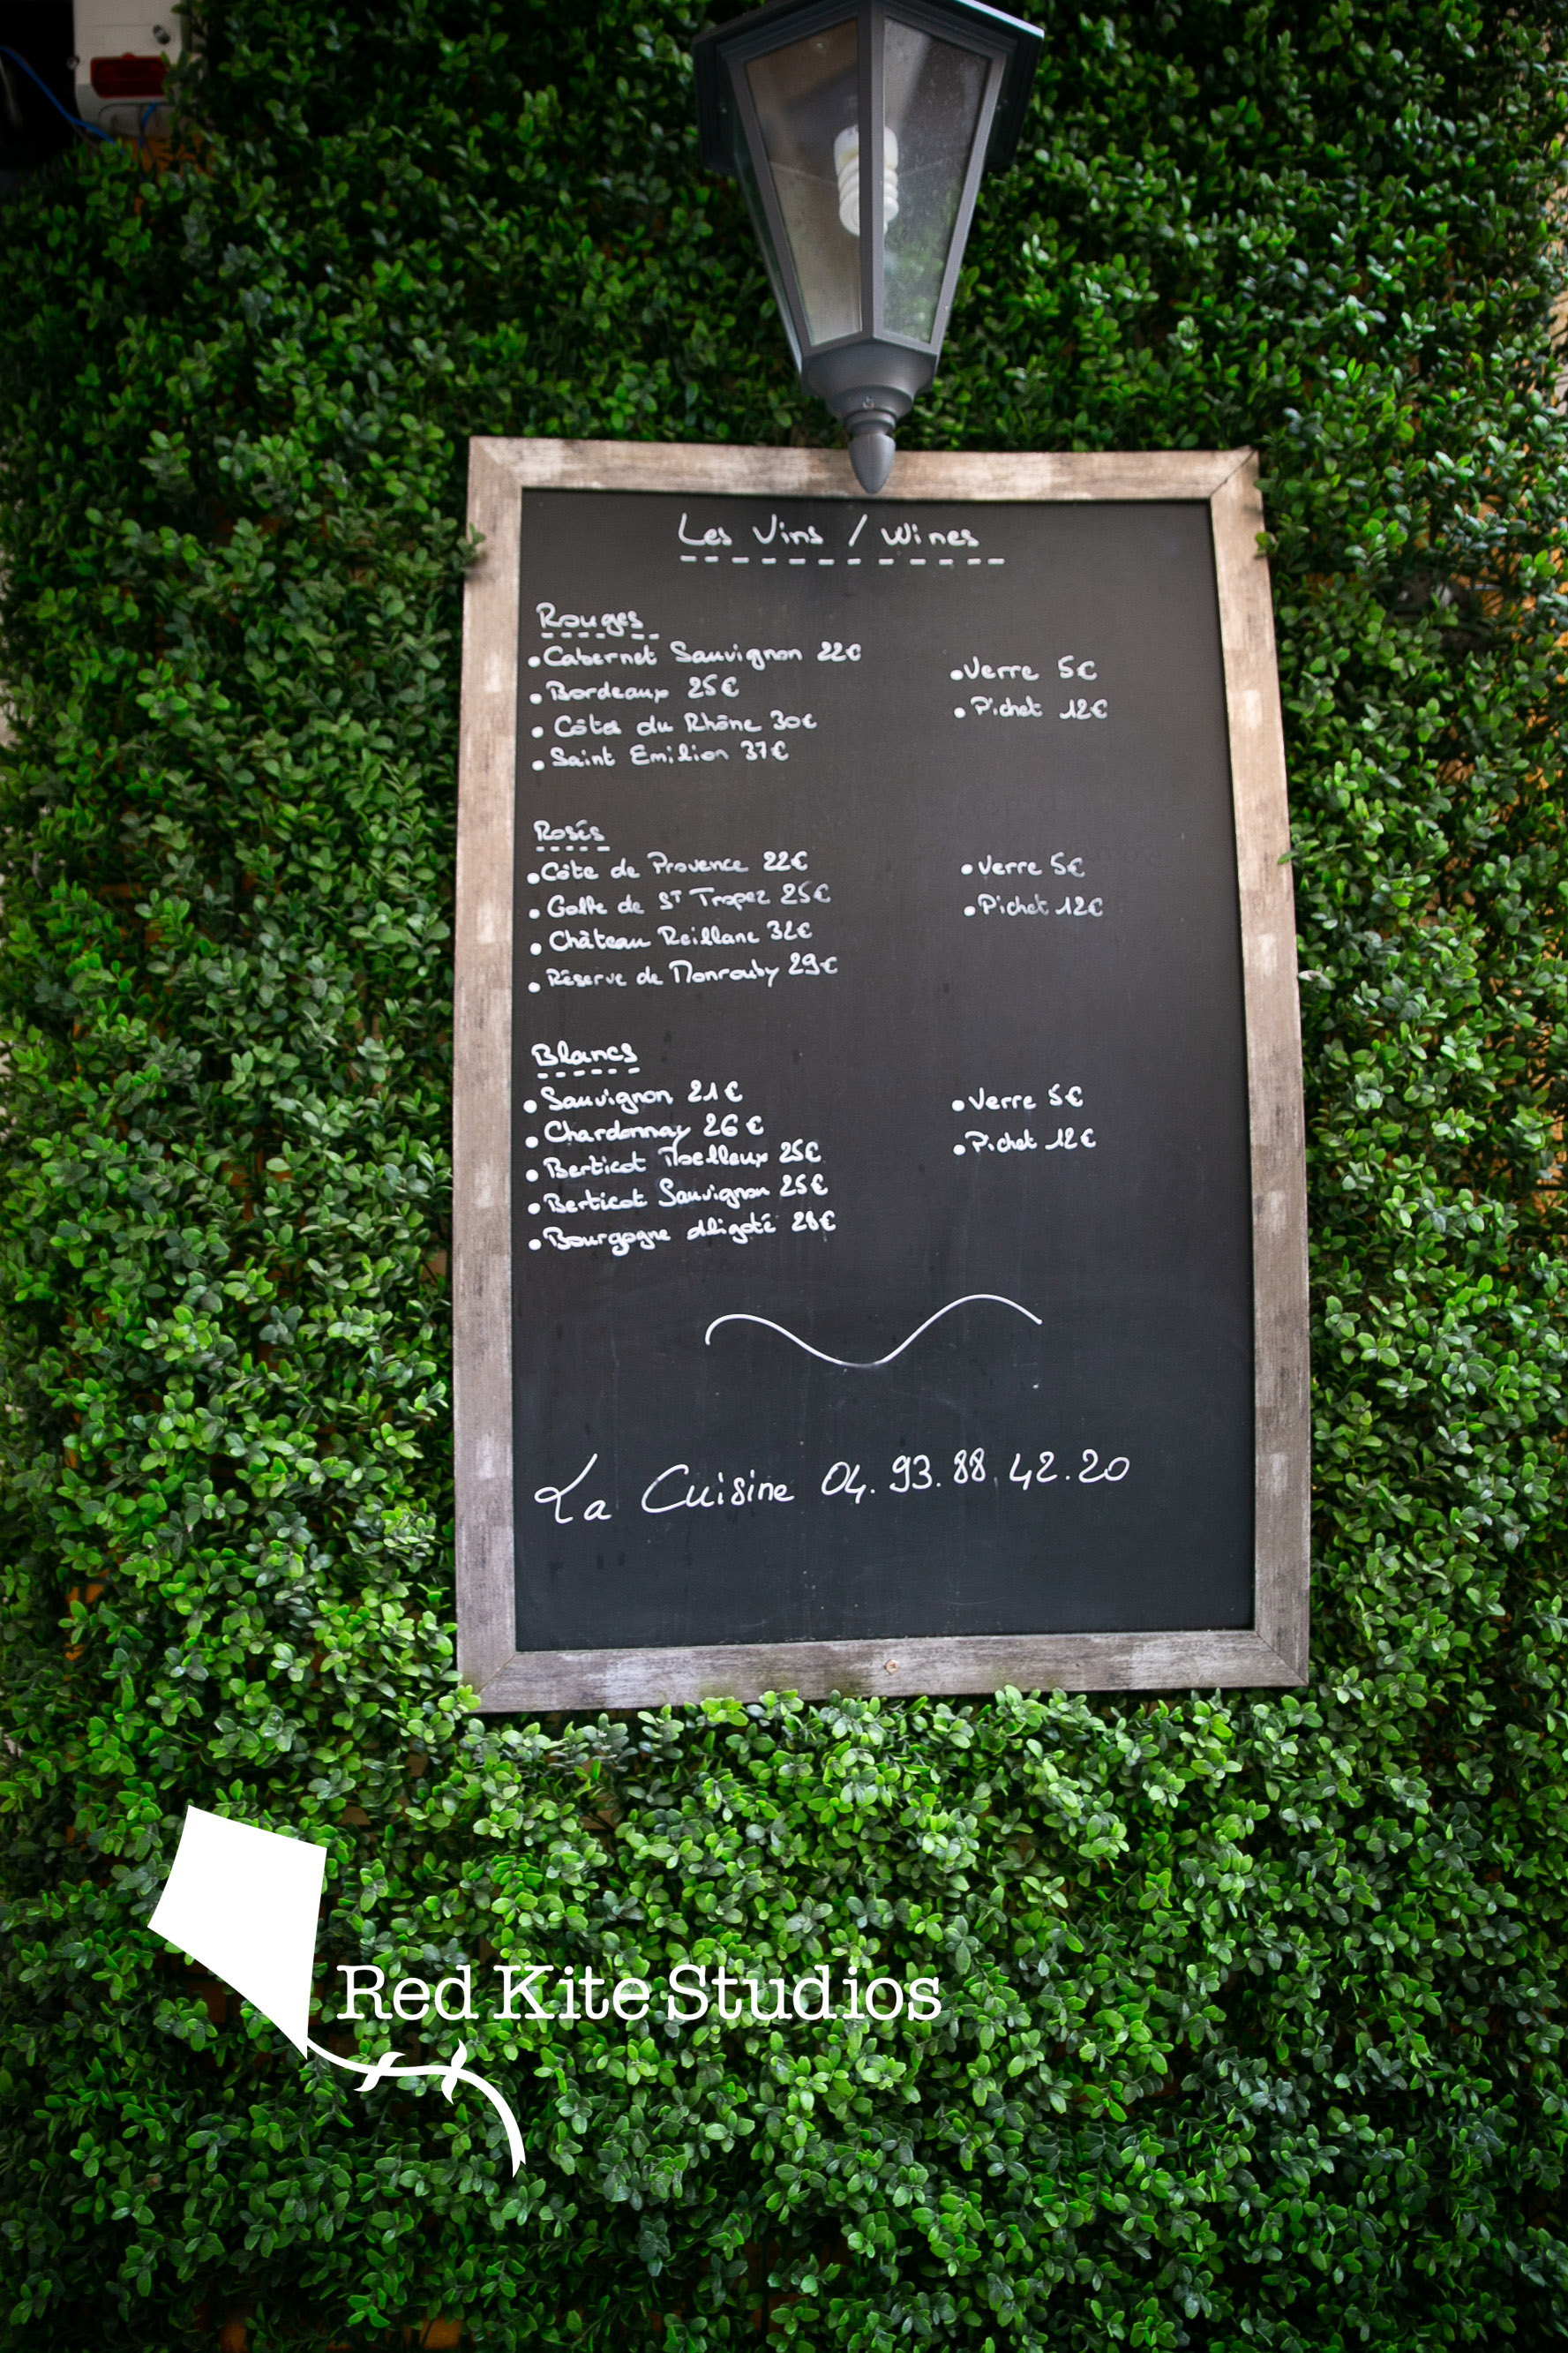 Les Vins / Wines
Rouges
• Cabernet Sauvignon 22€
• Bordeaux 25€
• Côtes du Rhône 30€
• Saint Emilion 37€
• Verre 5€
• Pichet 12€
Rosés
• Côte de Provence 22€
• Golfe de ST Tropez 25€
• Château Reillane 32€
• Réserve de Monrouby 29€
• Verre 5€
• Pichet 12€
Blancs
• Sauvignon 21€
• Chardonnay 26€
• Berticot Moelleux 25€
• Berticot Sauvignon 25€
• Bourgogne aligoté 28€
• Verre 5€
• Pichet 12€
La Cuisine 04.93.88.42.20
Red Kite Studios